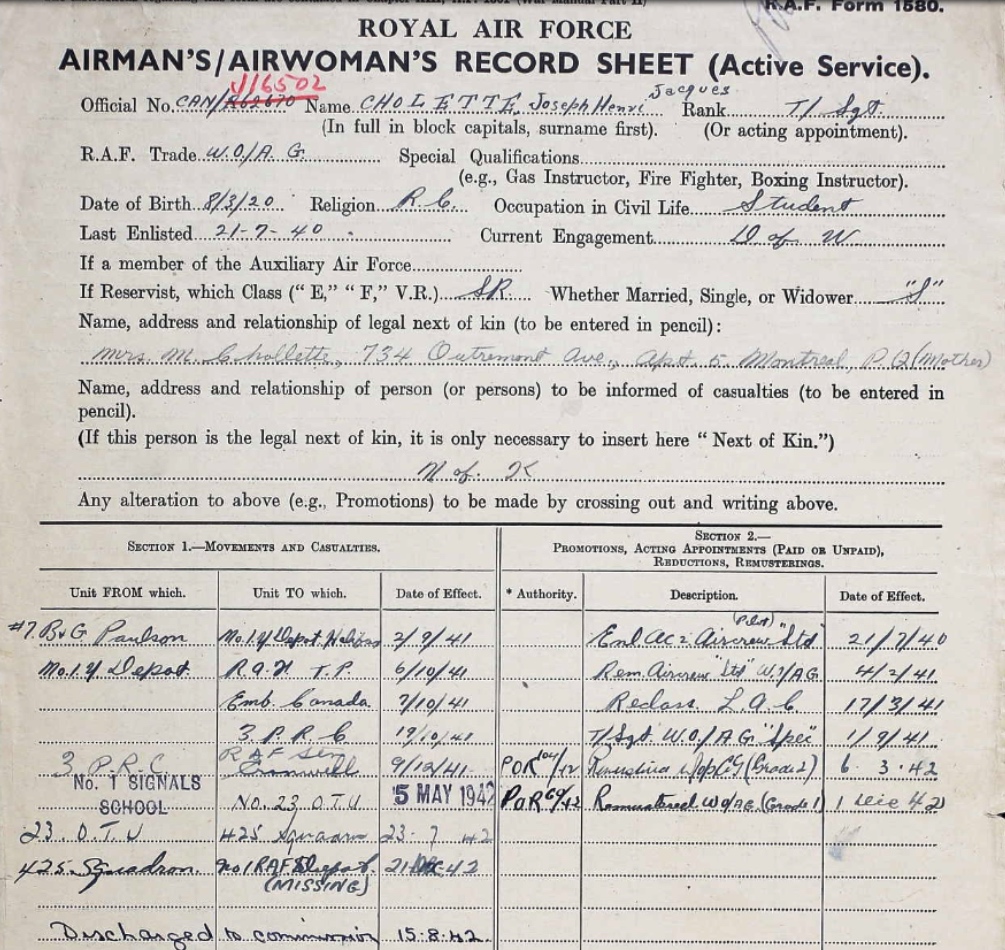 R.A.F. Form 1580.
ROYAL AIR FORCE
AIRMAN'S/AIRWOMAN'S RECORD SHEET (Active Service).
J16502
Jacques
Official No. CAN/R62670 Name CHOLETTE, Joseph Henri Rank T/Sgt.
(In full in block capitals, surname first). (Or acting appointment).
R.A.F. Trade W.O./A.G. Special Qualifications
(e.g., Gas Instructor, Fire Fighter, Boxing Instructor).
Date of Birth 8/3/20 Religion R.C. Occupation in Civil Life Student
Last Enlisted 21-7-40 Current Engagement D of W
If a member of the Auxiliary Air Force
If Reservist, which Class ("E," "F," V.R.) SR. Whether Married, Single, or Widower "S"
Name, address and relationship of legal next of kin (to be entered in pencil):
Mrs. M. Chollette, 734 Outremont Ave., Apt. 5 Montreal, P.Q (Mother)
Name, address and relationship of person (or persons) to be informed of casualties (to be entered in
pencil).
(If this person is the legal next of kin, it is only necessary to insert here "Next of Kin.")
N of K
Any alteration to above (e.g., Promotions) to be made by crossing out and writing above.
SECTION 1.—MOVEMENTS AND CASUALTIES.
SECTION 2.—
PROMOTIONS, ACTING APPOINTMENTS (PAID OR UNPAID),
REDUCTIONS, REMUSTERINGS.
Unit FROM which. Unit TO which. Date of Effect. * Authority. Description. Date of Effect.
#7 B&G Paulson No.1 Y Depot 2/9/41 Enl AC2 Aircrew "Std" 21/7/40
No.1 Y Depot R.A.F. T.P. 6/10/41 Rem. Aircrew "Std" W.O/AG 4/2/41
Emb. Canada 7/10/41 Reclass L.A.C 17/3/41
3 P.R.C 19/10/41 T/Sgt. W.O/AG "Spec" 1/9/41
3 P.R.C RAF Cranwell 9/12/41 POR /42 (Grade 2) 6.3.42
No. 1 SIGNALS
SCHOOL No. 23 O.T.U 5 MAY 1942 POR 69/42 Remustered W0/AG (Grade 1) 1 42
23. O.T.U 425 Squadron 23-7-42
425 Squadron No1 RAF Depot 21 DEC 42
(MISSING)
Discharged to commission 15.8.42.